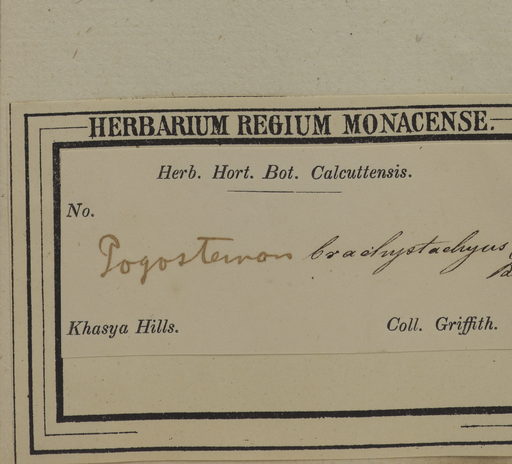 HERBARIUM REGIUM MONACENSE.
Herb. Hort. Bot. Calcuttensis.
No.
Pogostemon brachystachyus
Khasya Hills.
Coll. Griffith.